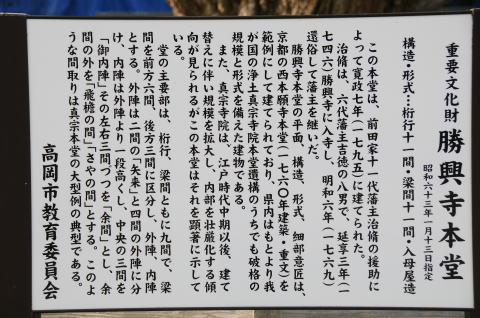 重要文化財 勝興寺本堂
昭和六十三年一月十三日指定
構造・形式…桁行十一間・梁間十一間・入母屋造
この本堂は、前田家十一代藩主治脩の援助に
よって寛政七年(一七九五)に建てられた。
治脩は、六代藩主吉徳の八男で、延享三年(一
七四六)勝興寺に入寺し、明和六年(一七六九)
還俗して藩主を継いだ。
勝興寺本堂の平面、構造、形式、細部意匠は、
京都の西本願寺本堂(一七六〇年建築・重文)を
範例にして建てられており、県内はもとより我
が国の浄土真宗寺院本堂遺構のうちでも破格の
規模と形式を備えた建物である。
また、真宗寺院は、江戸時代中期以後、建て
替えに伴い規模を拡大し、内部を壮厳化する傾
向が見られるがこの本堂はそれを顕著に示して
いる。
堂の主要部は、桁行、梁間ともに九間で、梁
間を前方六間、後方三間に区分し、外陣、内陣
とする。外陣は二間の「矢来」と四間の外陣に分
け、内陣は外陣より一段高くし、中央の三間を
「御内陣」その左右三間づつを「余間」とし、余
間の外を「飛檐の間」「さやの間」とする。このよ
うな間取りは真宗本堂の大型例の典型である。
高岡市教育委員会